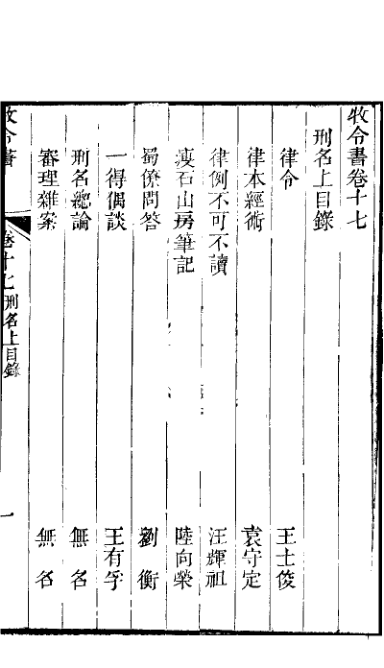 牧令書卷十七
刑名上目錄
律令 王士俊
律本經術 袁守定
律例不可不讀 汪輝祖
瘦石山房筆記 陸向榮
蜀僚問答 劉衡
一得偶談 王有孚
刑名總論 無名
審理雜案 無名
牧令書 卷十七 刑名上目錄 一